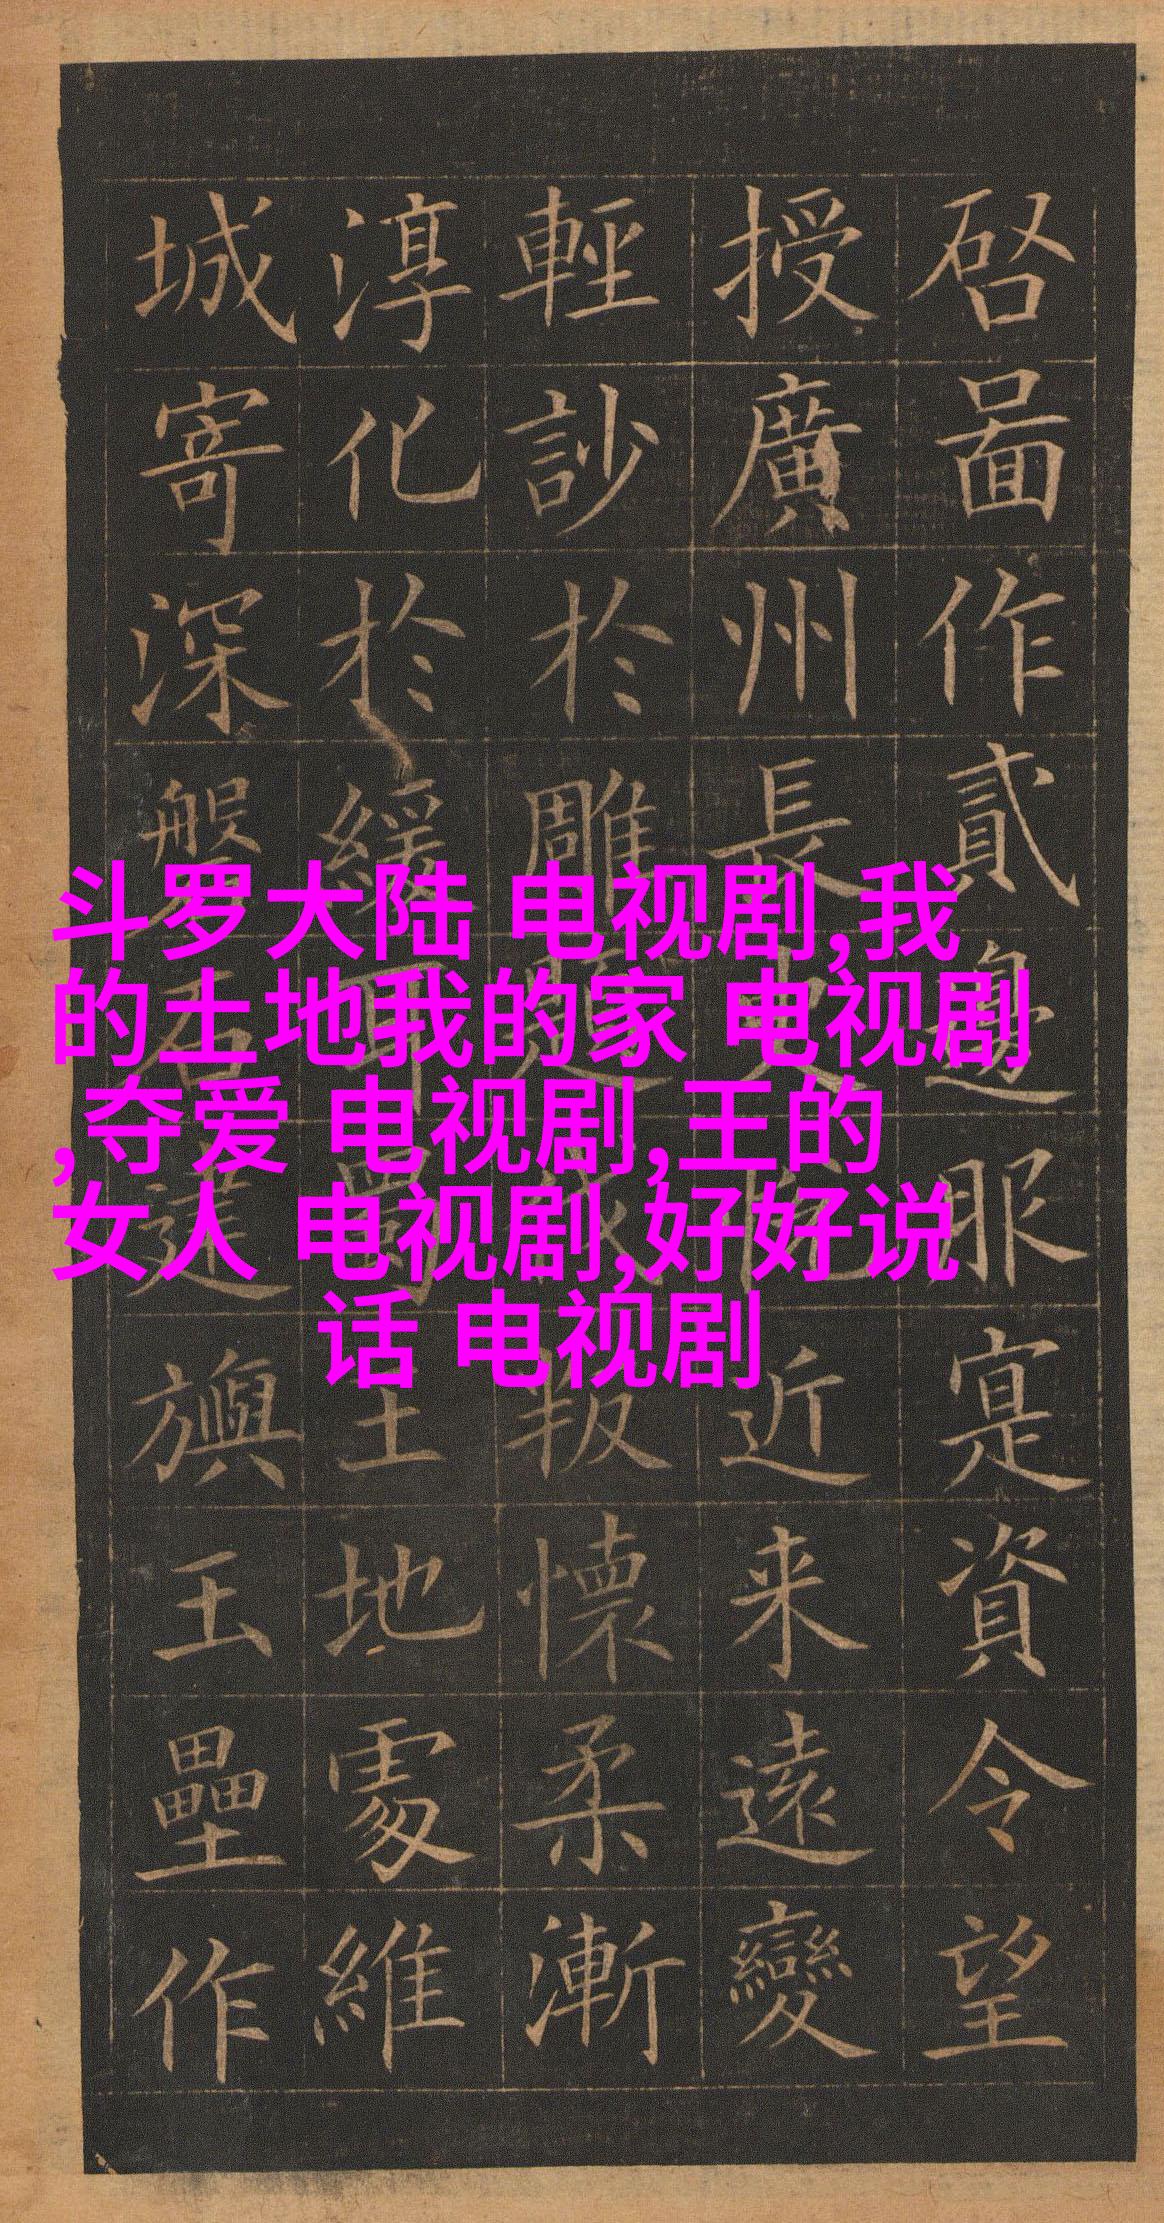 斗罗大陆 电视剧,我
的土地我的家 电视剧
,夺爱 电视剧,王的
女人 电视剧,好好说
话 电视剧
啓啚作貳邊服寔資令望
授廣州長史悅近来遠變
輕訬於雕題伐叛懷柔漸
淳化於緩耳蜀土地處維
城寄深磐石建旟玉壘作